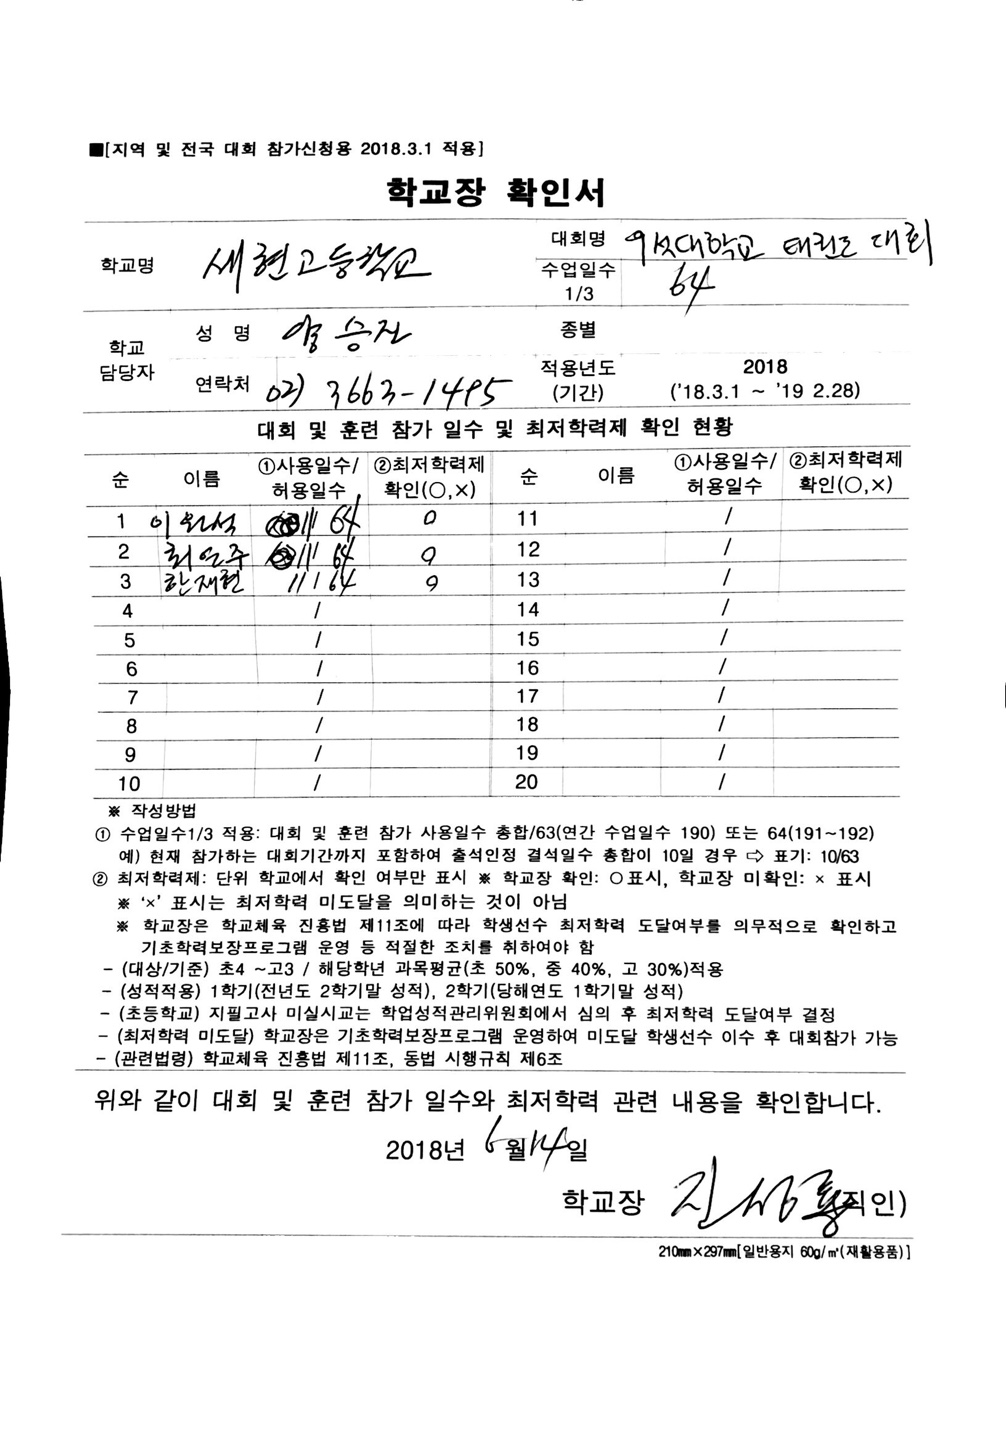 ■[지역 및 전국 대회 참가신청용 2018.3.1 적용]
학교장 확인서
학교명 세현고등학교
대회명 대학교 태권도 대회
수업일수 1/3 64
학교 담당자
성 명 승진
종별
연락처 02) 3663-1495
적용년도 (기간) 2018 ('18.3.1 ~ '19 2.28)
대회 및 훈련 참가 일수 및 최저학력제 확인 현황
순 이름 ①사용일수/허용일수 ②최저학력제 확인(○,×) 순 이름 ①사용일수/허용일수 ②최저학력제 확인(○,×)
1 이 석 11/64 O 11 /
2 최 주 11/64 O 12 /
3 한재현 11/64 O 13 /
4 / 14 /
5 / 15 /
6 / 16 /
7 / 17 /
8 / 18 /
9 / 19 /
10 / 20 /
※ 작성방법
① 수업일수1/3 적용: 대회 및 훈련 참가 사용일수 총합/63(연간 수업일수 190) 또는 64(191~192)
예) 현재 참가하는 대회기간까지 포함하여 출석인정 결석일수 총합이 10일 경우 ⇨ 표기: 10/63
② 최저학력제: 단위 학교에서 확인 여부만 표시 ※ 학교장 확인: ○표시, 학교장 미확인: × 표시
※ '×' 표시는 최저학력 미도달을 의미하는 것이 아님
※ 학교장은 학교체육 진흥법 제11조에 따라 학생선수 최저학력 도달여부를 의무적으로 확인하고
기초학력보장프로그램 운영 등 적절한 조치를 취하여야 함
- (대상/기준) 초4 ~고3 / 해당학년 과목평균(초 50%, 중 40%, 고 30%)적용
- (성적적용) 1학기(전년도 2학기말 성적), 2학기(당해연도 1학기말 성적)
- (초등학교) 지필고사 미실시교는 학업성적관리위원회에서 심의 후 최저학력 도달여부 결정
- (최저학력 미도달) 학교장은 기초학력보장프로그램 운영하여 미도달 학생선수 이수 후 대회참가 가능
- (관련법령) 학교체육 진흥법 제11조, 동법 시행규칙 제6조
위와 같이 대회 및 훈련 참가 일수와 최저학력 관련 내용을 확인합니다.
2018년 6월 14일
학교장 진 직인)
210㎜×297㎜[일반용지 60g/㎡(재활용품)]